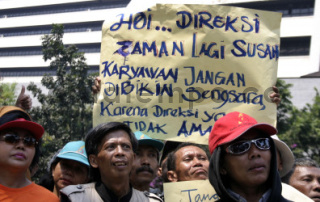 HOI... DIREKSI
ZAMAN LAGI SUSAH
KARYAWAN JANGAN
DIBIKIN SENGSARA
KARENA DIREKSI YA
TIDAK AMA
JANG